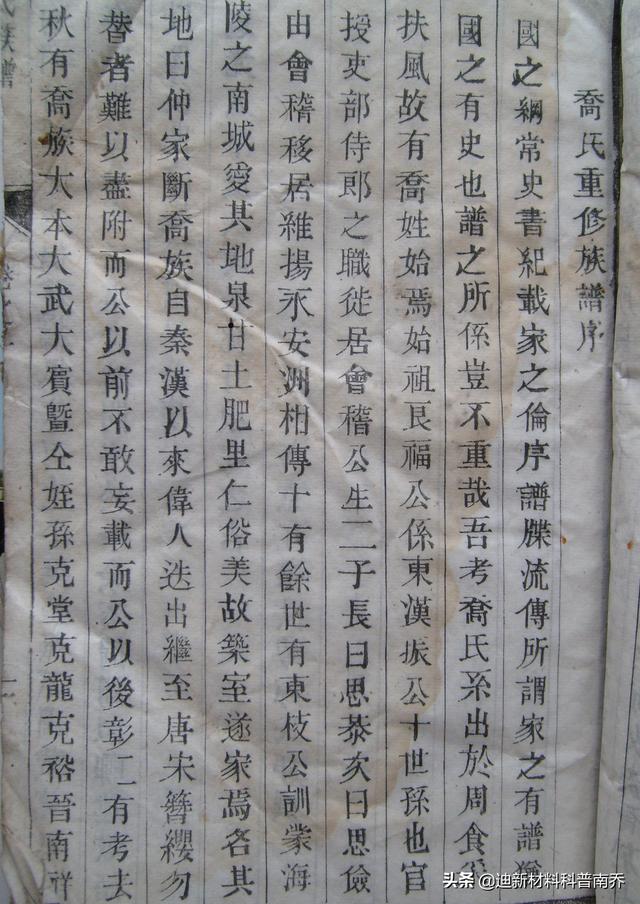 喬氏重修族譜序
國之綱常史書紀載家之倫序譜牒流傳所謂家之有譜猶
國之有史也譜之所係豈不重哉吾考喬氏系出於周食采
扶風故有喬姓始焉始祖良福公係東漢振公十世孫也官
授吏部侍郎之職徙居會稽公生二子長曰思恭次曰思儉
由會稽移居維揚永安洲相傳十有餘世有東枝公訓蒙海
陵之南城愛其地泉甘土肥里仁俗美故築室遂家焉名其
地曰仲家斷喬族自秦漢以來偉人迭出繼至唐宋簪纓勿
替者難以盡附而公以前不敢妄載而公以後彰二有考去
秋有喬族大本大武大賓暨仝姪孫克堂克龍克裕晉南祥
氏族譜
头条 @迪新材料科普南乔